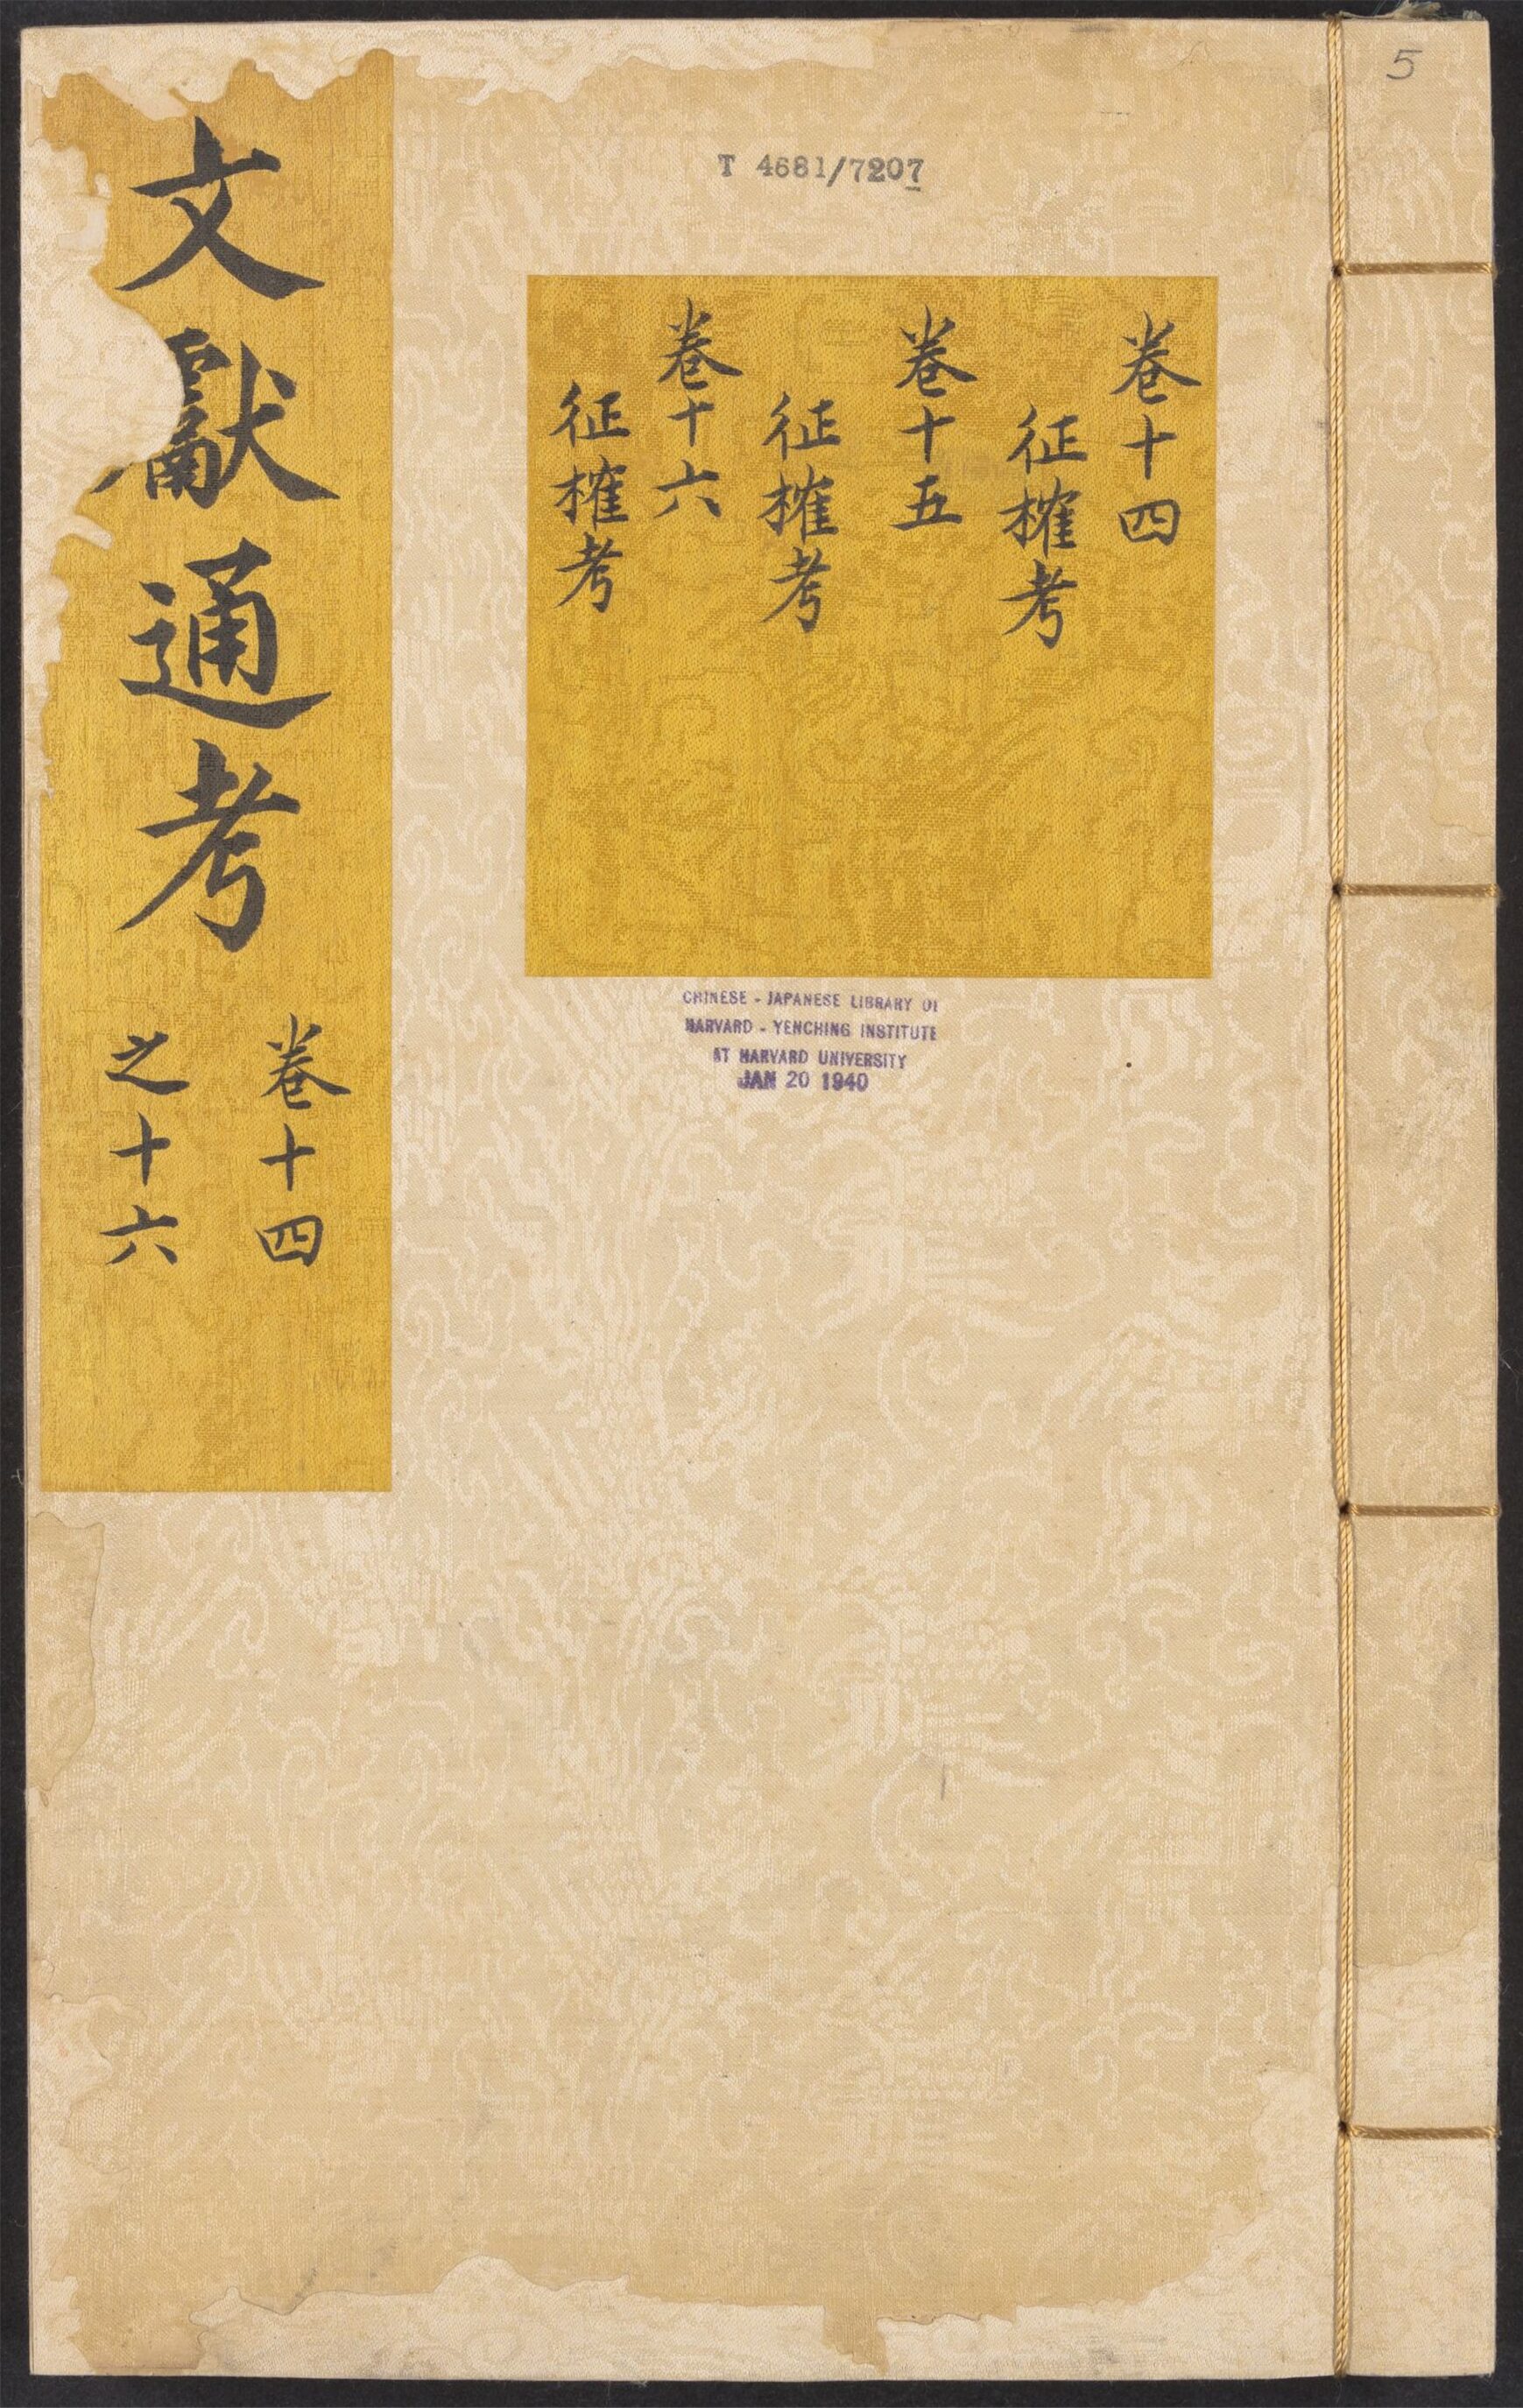 5
T 4681/7207
卷十四
征榷考
卷十五
征榷考
卷十六
征榷考
文獻通考
卷十四
之十六
CHINESE - JAPANESE LIBRARY OF
HARVARD - YENCHING INSTITUTE
AT HARVARD UNIVERSITY
JAN 20 1940